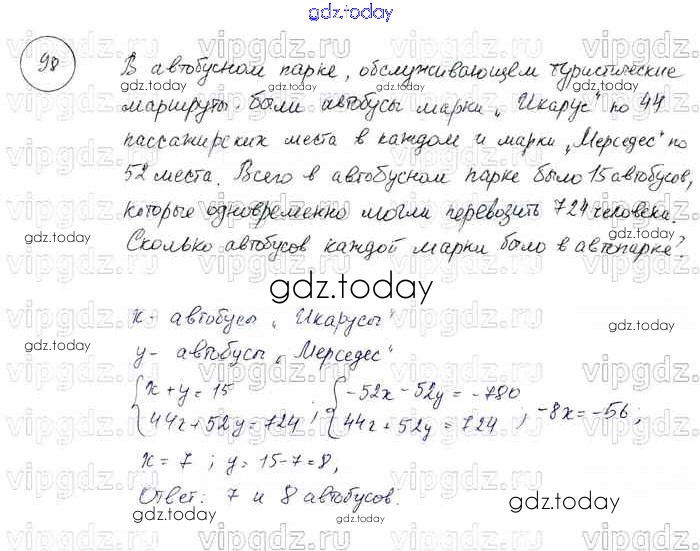 gdz.today
98
В автобусном парке, обслуживающем туристические
маршруты, были автобусы марки „Икарус" по 44
пассажирских места в каждом и марки „Мерседес" по
52 места. Всего в автобусном парке было 15 автобусов,
которые одновременно могли перевозить 724 человека.
Сколько автобусов каждой марки было в автопарке?
gdz.today
x - автобусы „Икарусы"
y - автобусы „Мерседес"
{x + y = 15 ; {-52x - 52y = -780 , -8x = -56;
{44x + 52y = 724 {44x + 52y = 724
x = 7 ; y = 15 - 7 = 8;
Ответ: 7 и 8 автобусов.
gdz.today
vipgdz.ru